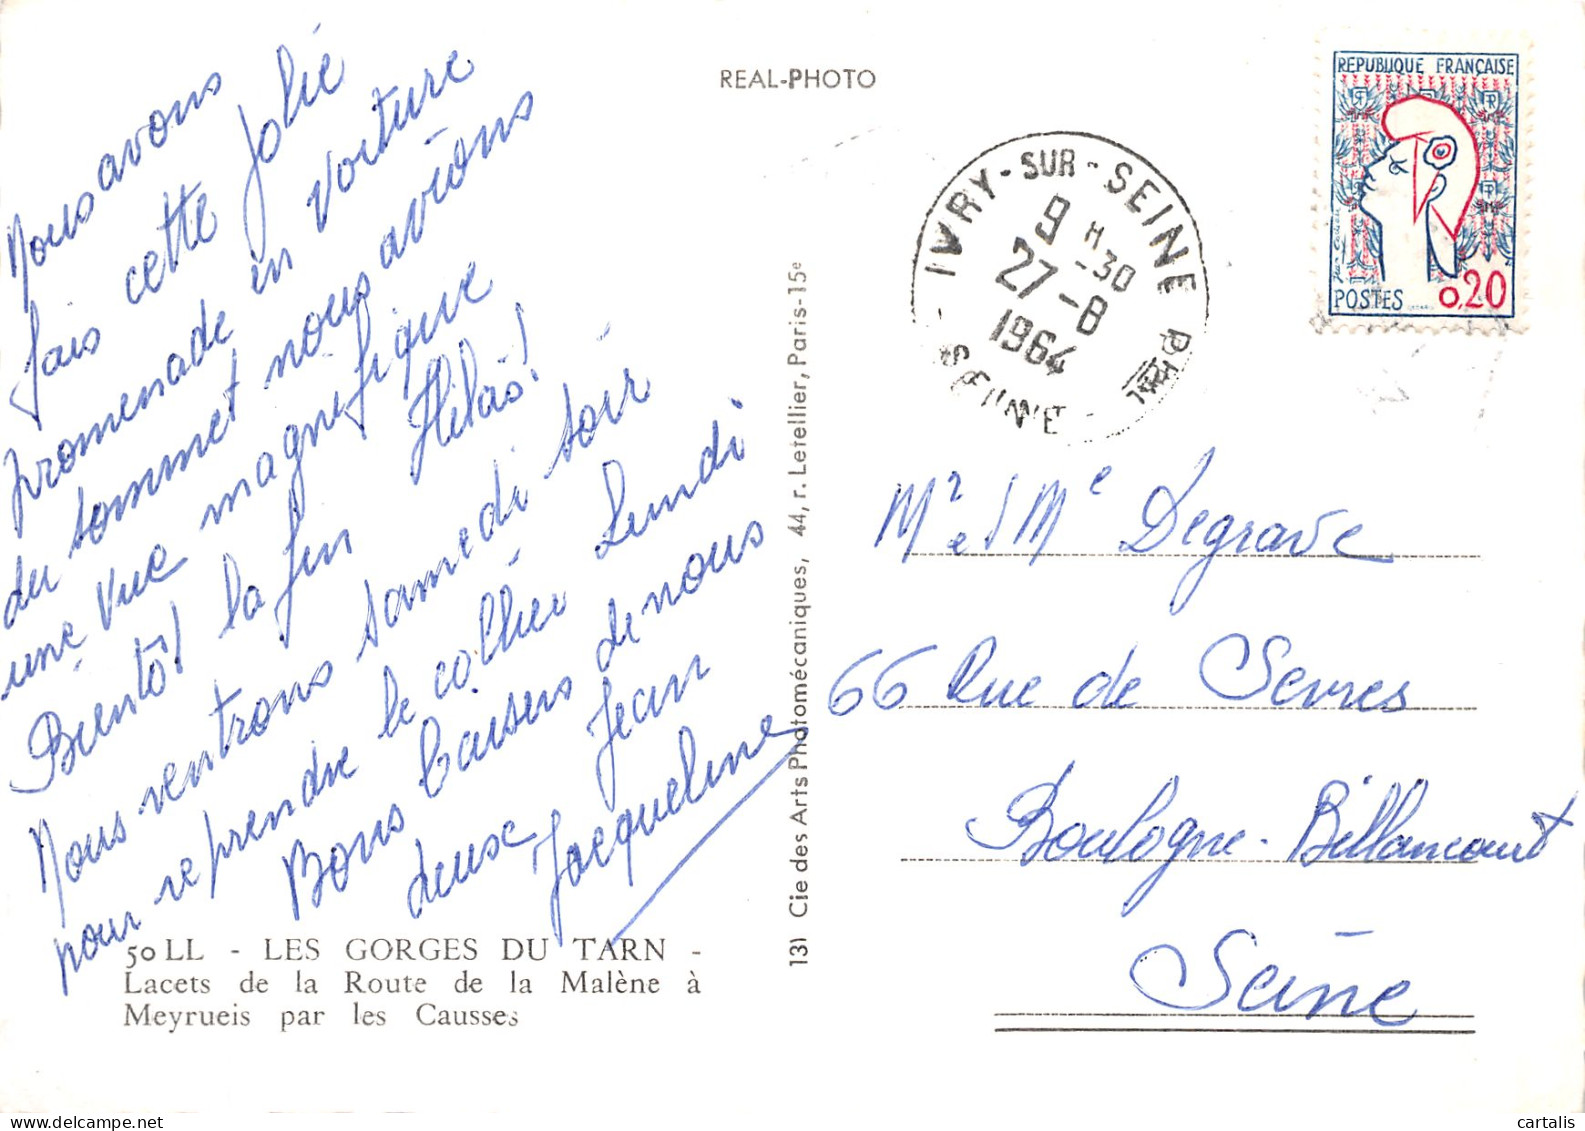 REAL-PHOTO
Nous avons
fais cette jolie
promenade en voiture
du sommet nous avions
une vue magnifique
Bientôt la fin Hélas!
Nous rentrons samedi soir
pour reprendre le collier Lundi
Bons baisers de nous
deux Jean
Jacqueline
50 LL - LES GORGES DU TARN -
Lacets de la Route de la Malène à
Meyrueis par les Causses
131 Cie des Arts Photomécaniques, 44, r. Letellier, Paris-15e
IVRY-SUR-SEINE PPAL
9 H -30
27-8
1964
SEINE
REPUBLIQUE FRANÇAISE
POSTES 0,20
Mr et Me Degrave
66 Rue de Sevres
Boulogne-Billancourt
Seine
cartalis